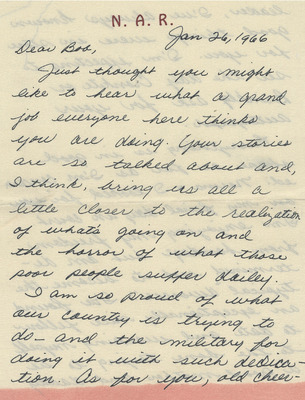 N. A. R.
Jan 26, 1966
Dear Bob,
Just thought you might
like to hear what a grand
job everyone here thinks
you are doing. Your stories
are so talked about and,
I think, bring us all a
little closer to the realization
of what's going on and
the horror of what those
poor people suffer dailey.
I am so proud of what
our country is trying to
do - and the military for
doing it with such dedica-
tion. As for you, old cheer-